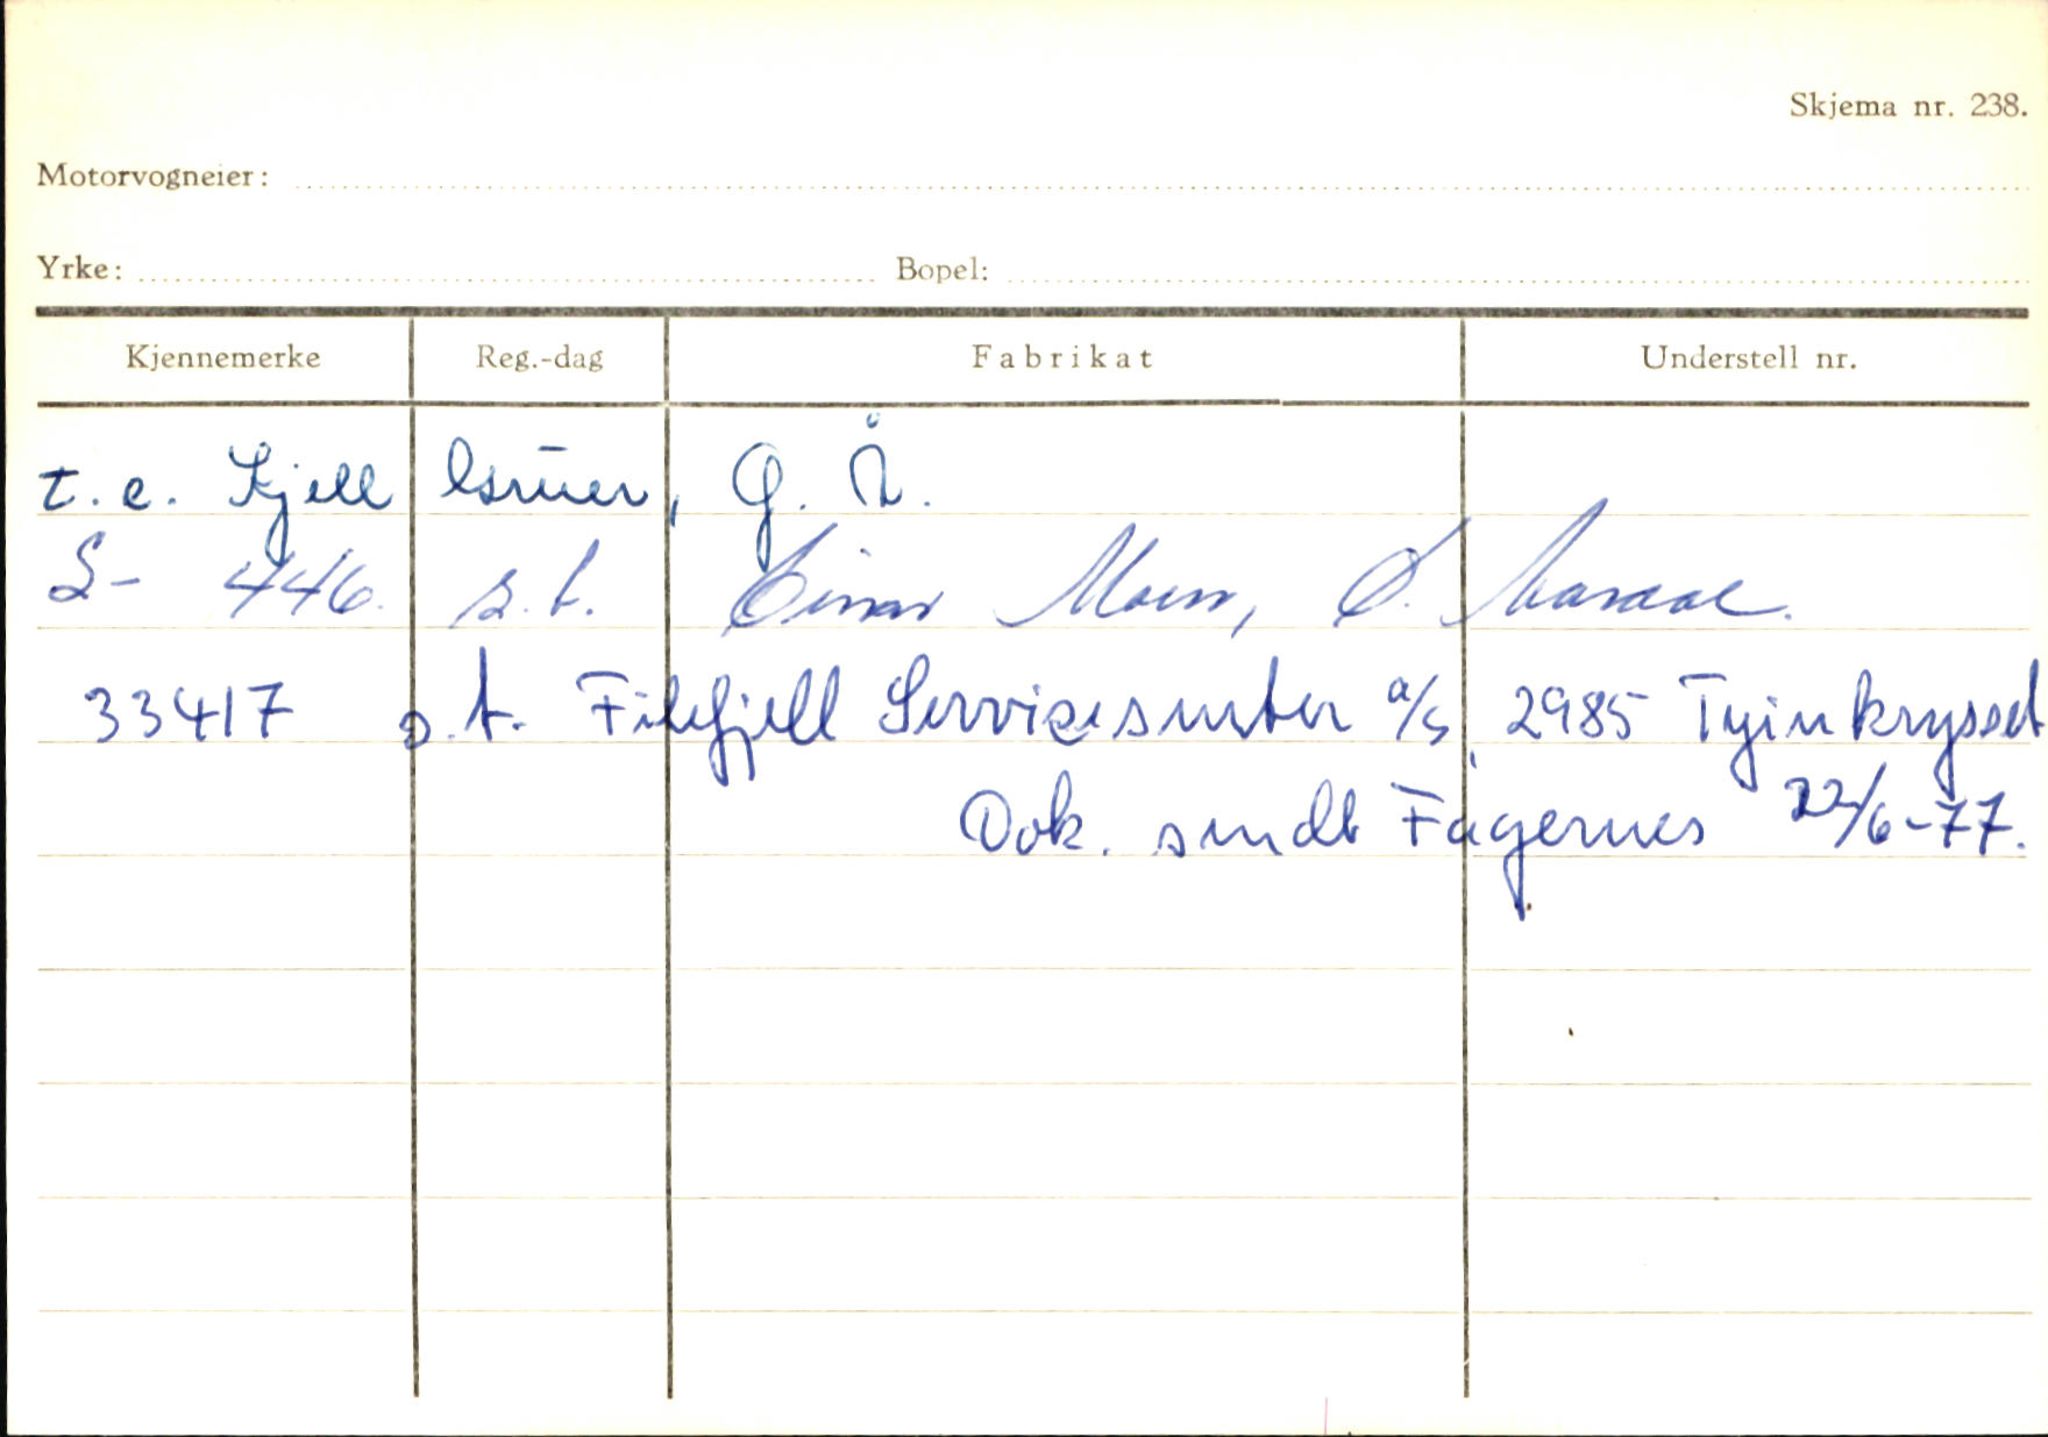 Skjema nr. 238.
Motorvogneier:
Yrke: Bopel:
Kjennemerke Reg.-dag Fabrikat Understell nr.
t. e. Kjell G. Å.
S- 446. s. t. Einar Moen, Ø.
33417 s. t. Filefjell Servicesenter a/s, 2985 Tyinkrysset
Dok. sendt Fagernes 22/6-77.